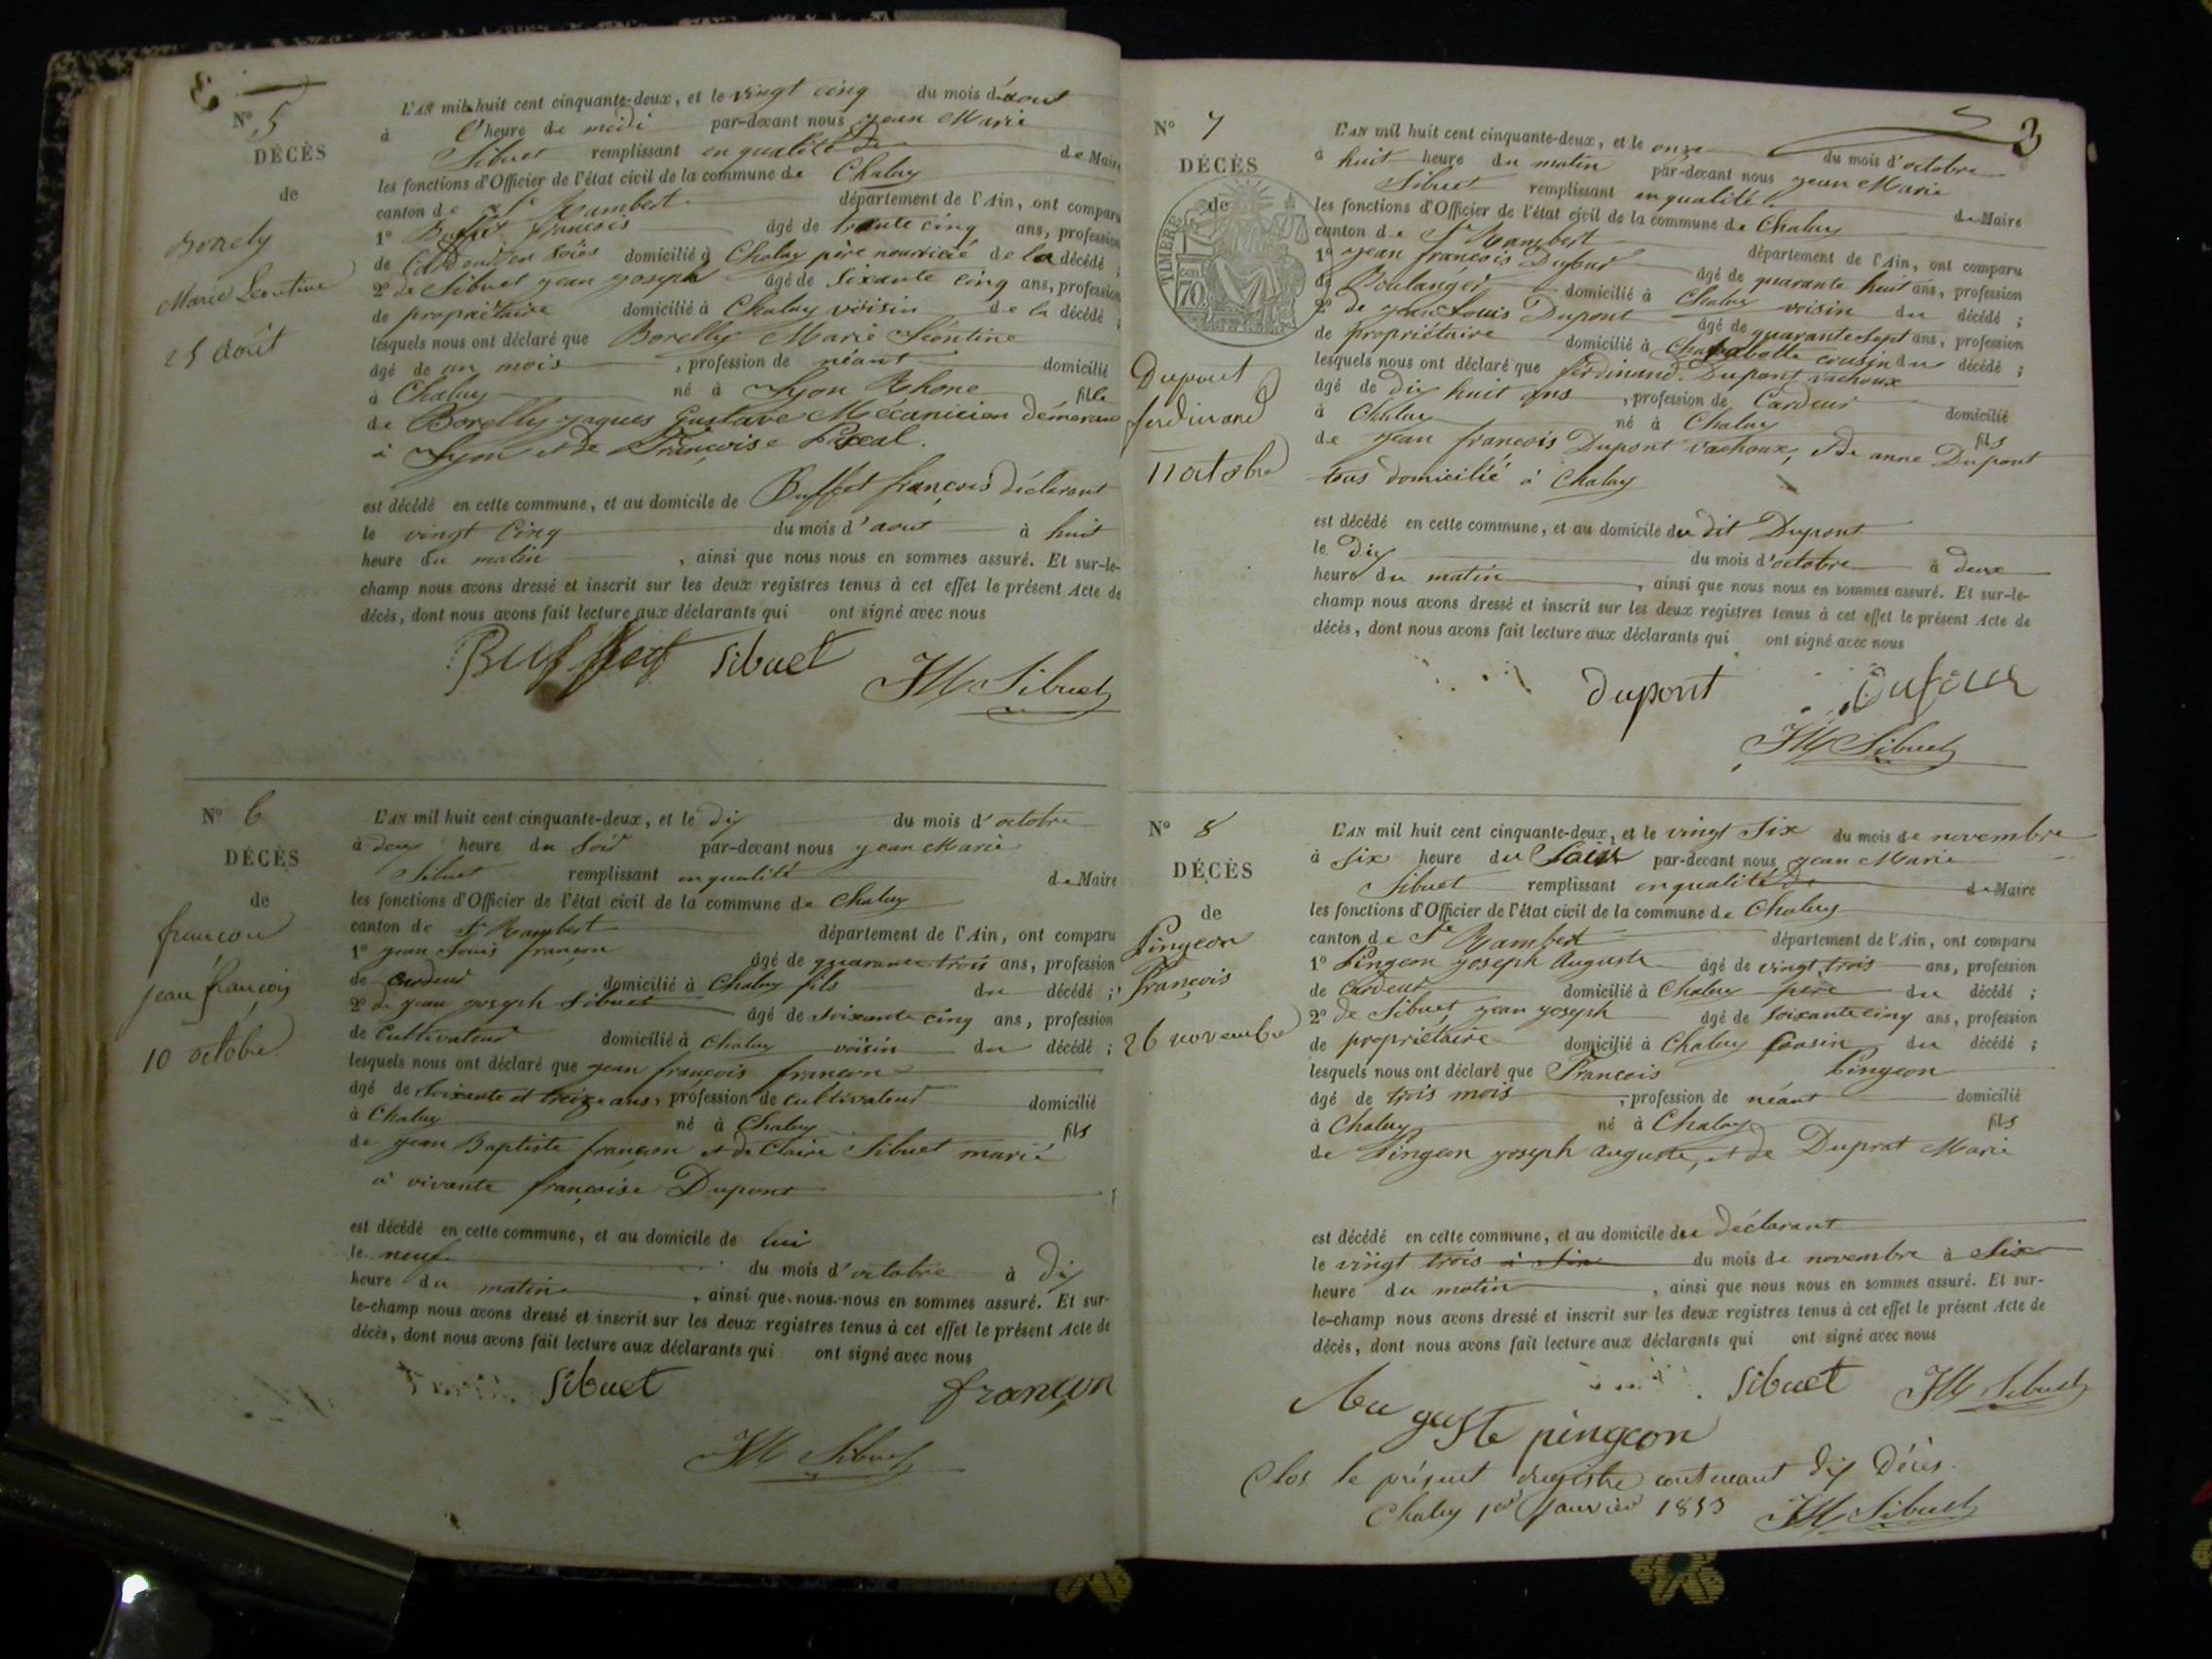 N° 5
DÉCÈS
de
Borely
Marie Leontine
25 août
L'AN mil huit cent cinquante-deux, et le vingt cinq du mois d'aout
à l'heure de midi par-devant nous jean Marie
Sibuet remplissant en qualité de de Maire
les fonctions d'Officier de l'état civil de la commune de Chaley
canton de St Rambert département de l'Ain, ont comparu
1° Buffet francois âgé de trente cinq ans, profession
de Cardeur en soies domicilié à Chaley père nourricié de la décédé ;
2° de Sibuet jean joseph âgé de Sixante cinq ans, profession
de propriétaire domicilié à Chaley voisin de la décédé ;
lesquels nous ont déclaré que Borelly Marie Léontine
âgé de un mois , profession de néant domicilié
à Chaley né à Lyon Rhone fille
de Borelly jaques Gustave Mécanicien démeurant
à Lyon et de Françoise Pascal.
est décédé en cette commune, et au domicile de Buffet françois déclarant
le vingt Cinq du mois d'aout à huit
heure du matin , ainsi que nous nous en sommes assuré. Et sur-le-
champ nous avons dressé et inscrit sur les deux registres tenus à cet effet le présent Acte de
décès, dont nous avons fait lecture aux déclarants qui ont signé avec nous
Buffet Sibuet
JM Sibuet
N° 6
DÉCÈS
de
françon
jean françois
10 octobre
L'AN mil huit cent cinquante-deux, et le dix du mois d'octobre
à deux heure du soir par-devant nous jean Marie
Sibuet remplissant en qualité de Maire
les fonctions d'Officier de l'état civil de la commune de Chaley
canton de St Rambert département de l'Ain, ont comparu
1° jean Louis françon âgé de quarante trois ans, profession
de cardeur domicilié à Chaley fils du décédé ;
2° de jean joseph Sibuet âgé de soixante cinq ans, profession
de Cultivateur domicilié à Chaley voisin du décédé ;
lesquels nous ont déclaré que jean françois françon
âgé de soixante et treize ans, profession de cultivateur domicilié
à Chaley né à Chaley fils
de jean Baptiste françon et de Claire Sibuet marié
à vivante françoise Dupont
est décédé en cette commune, et au domicile de lui
le neuf du mois d'octobre à dix
heure du matin , ainsi que nous nous en sommes assuré. Et sur-
le-champ nous avons dressé et inscrit sur les deux registres tenus à cet effet le présent Acte de
décès, dont nous avons fait lecture aux déclarants qui ont signé avec nous
Sibuet françon
JM Sibuet
3
N° 7
DÉCÈS
de
TIMBRE
70 cen
Dupont
ferdinand
11 octobre
L'AN mil huit cent cinquante-deux, et le onze du mois d'octobre
à huit heure du matin par-devant nous jean Marie
Sibuet remplissant en qualité de Maire
les fonctions d'Officier de l'état civil de la commune de Chaley
canton de St Rambert département de l'Ain, ont comparu
1° jean françois Dufour âgé de quarante huit ans, profession
de Boulanger domicilié à Chaley voisin du décédé ;
2° de jean Louis Dupont âgé de quarante sept ans, profession
de propriétaire domicilié à cousin du décédé ;
lesquels nous ont déclaré que ferdinand Dupont vachoux
âgé de dix huit ans , profession de Cardeur domicilié
à Chaley né à Chaley fils
de jean françois Dupont vachoux, et de anne Dupont
tous domicilié à Chaley
est décédé en cette commune, et au domicile du dit Dupont
le dix du mois d'octobre à deux
heure du matin , ainsi que nous nous en sommes assuré. Et sur-le-
champ nous avons dressé et inscrit sur les deux registres tenus à cet effet le présent Acte de
décès, dont nous avons fait lecture aux déclarants qui ont signé avec nous
dupont Dufour
JM Sibuet
N° 8
DÉCÈS
de
Pingeon
François
26 novembre
L'AN mil huit cent cinquante-deux, et le vingt Six du mois de novembre
à six heure du Soir par-devant nous jean Marie
Sibuet remplissant en qualité de de Maire
les fonctions d'Officier de l'état civil de la commune de Chaley
canton de St Rambert département de l'Ain, ont comparu
1° Pingeon joseph Auguste âgé de vingt trois ans, profession
de Cardeur domicilié à Chaley pere du décédé ;
2° de Sibuet jean joseph âgé de soixante cinq ans, profession
de propriétaire domicilié à Chaley Cousin du décédé ;
lesquels nous ont déclaré que François Pingeon
âgé de trois mois , profession de néant domicilié
à Chaley né à Chaley fils
de Pingeon joseph auguste, et de Duprat Marie
est décédé en cette commune, et au domicile du déclarant
le vingt trois à Six du mois de novembre à Six
heure du matin , ainsi que nous nous en sommes assuré. Et sur-
le-champ nous avons dressé et inscrit sur les deux registres tenus à cet effet le présent Acte de
décès, dont nous avons fait lecture aux déclarants qui ont signé avec nous
Sibuet JM Sibuet
Au guste pingeon
Clos le présent régistre contenant dix Décès.
Chaley 1er janvier 1853 JM Sibuet